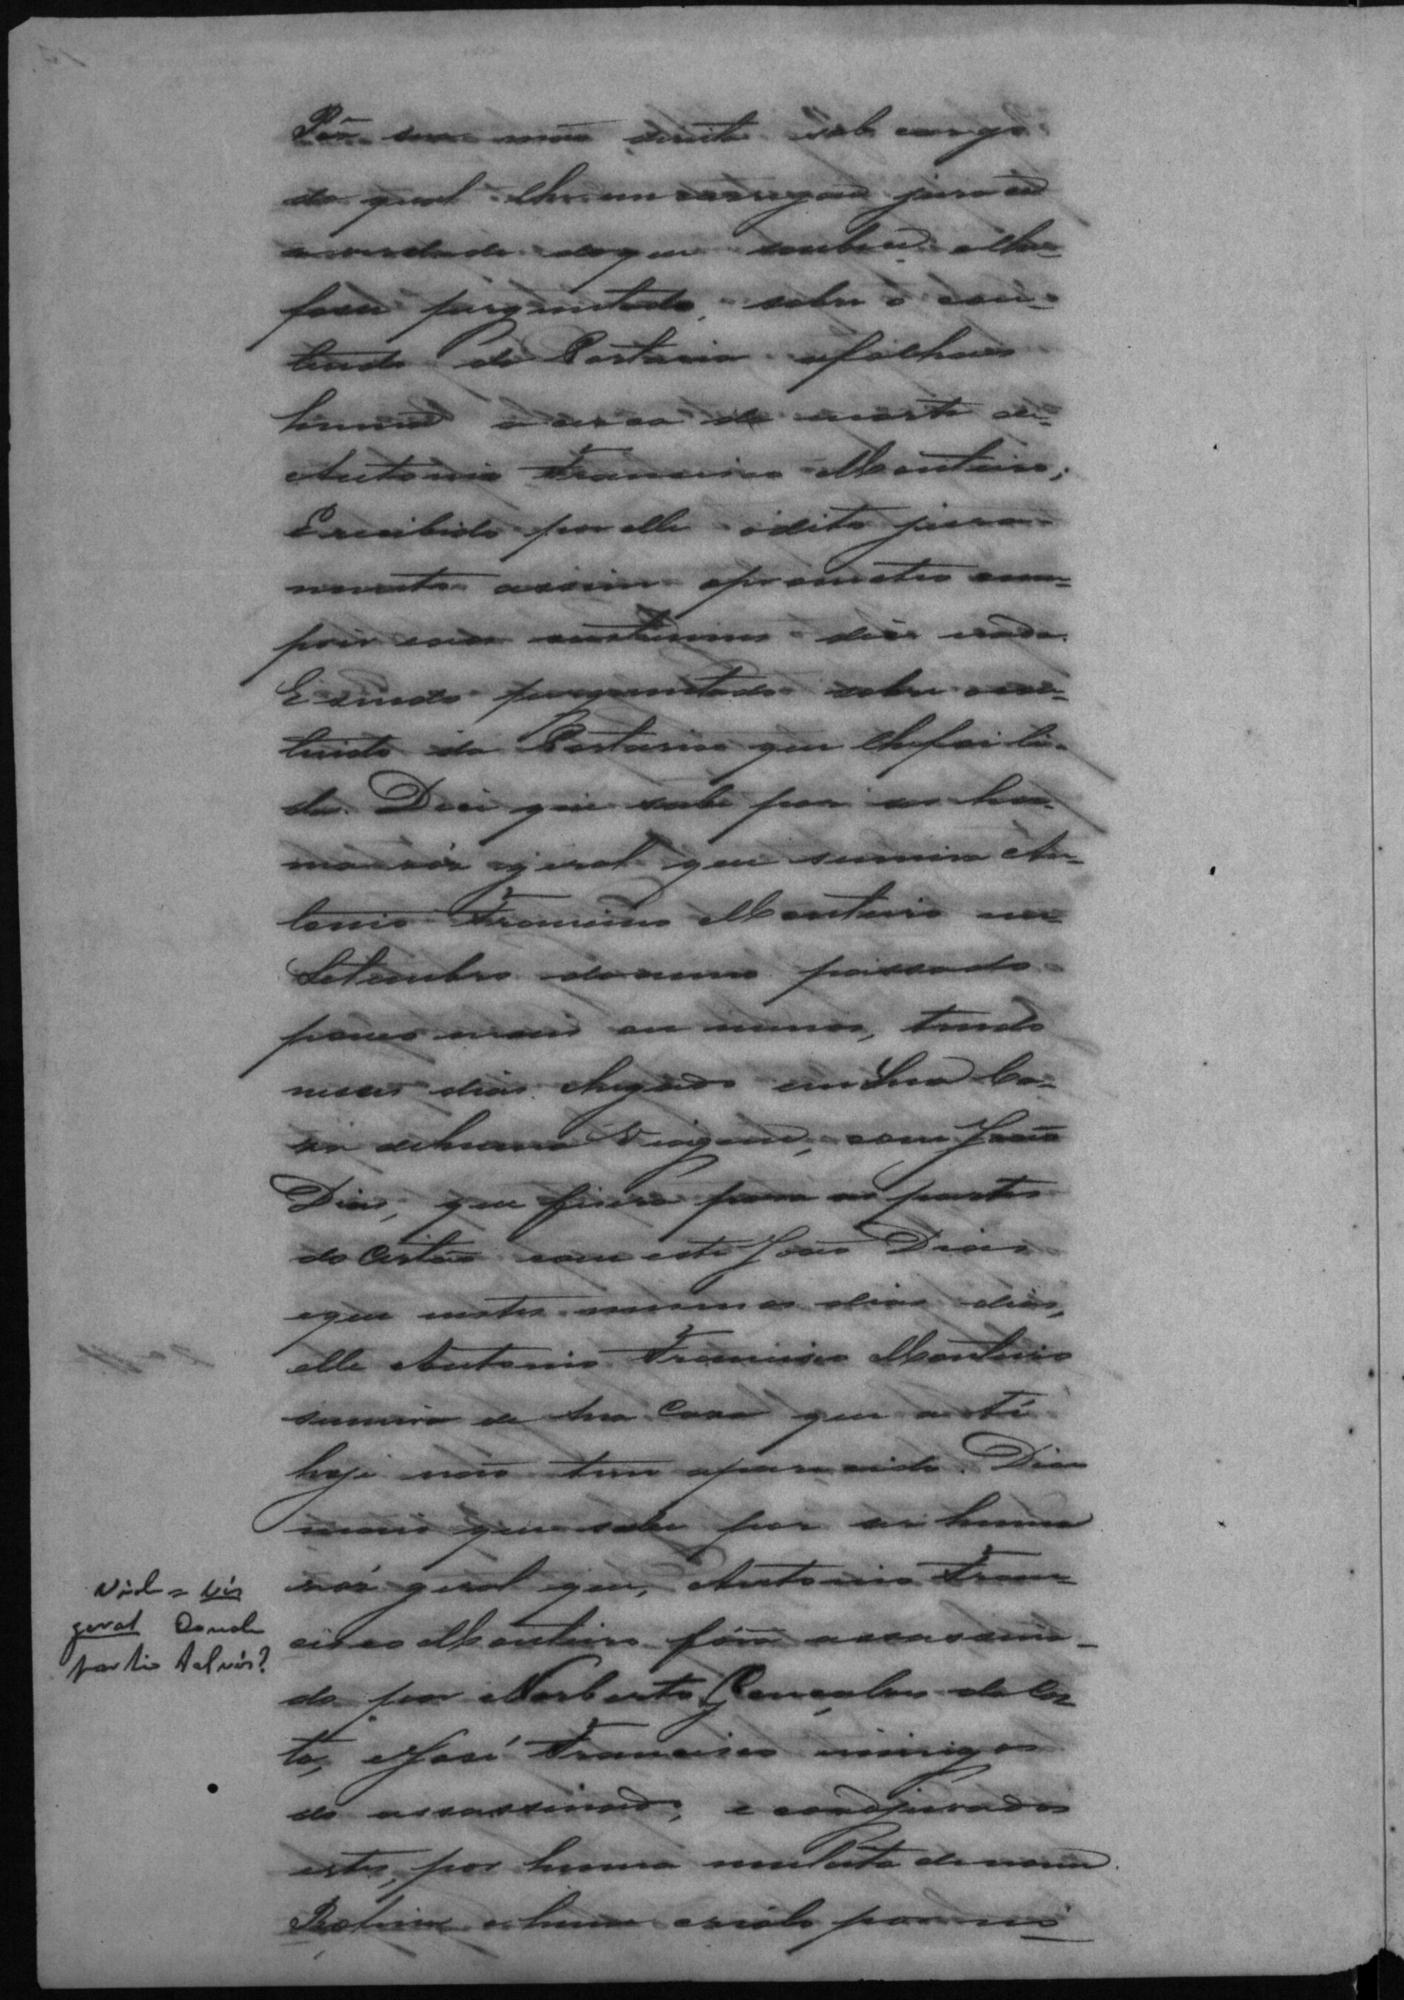 Pôr sua mão direita sob cargo
do qual lhe encarregou jurace
averdade doque soubece elhe
fosse perguntado, sobre o con-
teudo da Portaria afolhas
huma acerca da morte de
Antonio Francisco Monteiro;
E recibido por elle odito jura-
mento assim oprometeo cum-
prir e aos custumes dice nada.
E sendo perguntado sobre ocon-
teudo da Portaria que lhefoi li-
da. Dice que sabe por ser hu-
ma vós geral que sumira An-
tonio Francisco Monteiro em
Setembro doanno passado
pouco mais ou menos, tendo
nesses dias chegado em Sua Ca-
za dehuma Viagem, com João
Dias, que fizera para as partes
do Certão com este João Dias
eque nestes mesmos dias
elle Antonio Francisco Monteiro
sumira de Sua Caza que athé
hoje não tem aparecido. Dice
mais que sabe por ser huma
vós geral que, Antonio Fran-
cisco Monteiro fôra assassina-
do por Norberto Gonçalves da Cos
ta, eJosé Francisco inimigos
do assassinado, e coadjuvados
estes, por huma mulata denome
ehum criolo por no
Vide = Vós
geral Donde
partio tal vós?